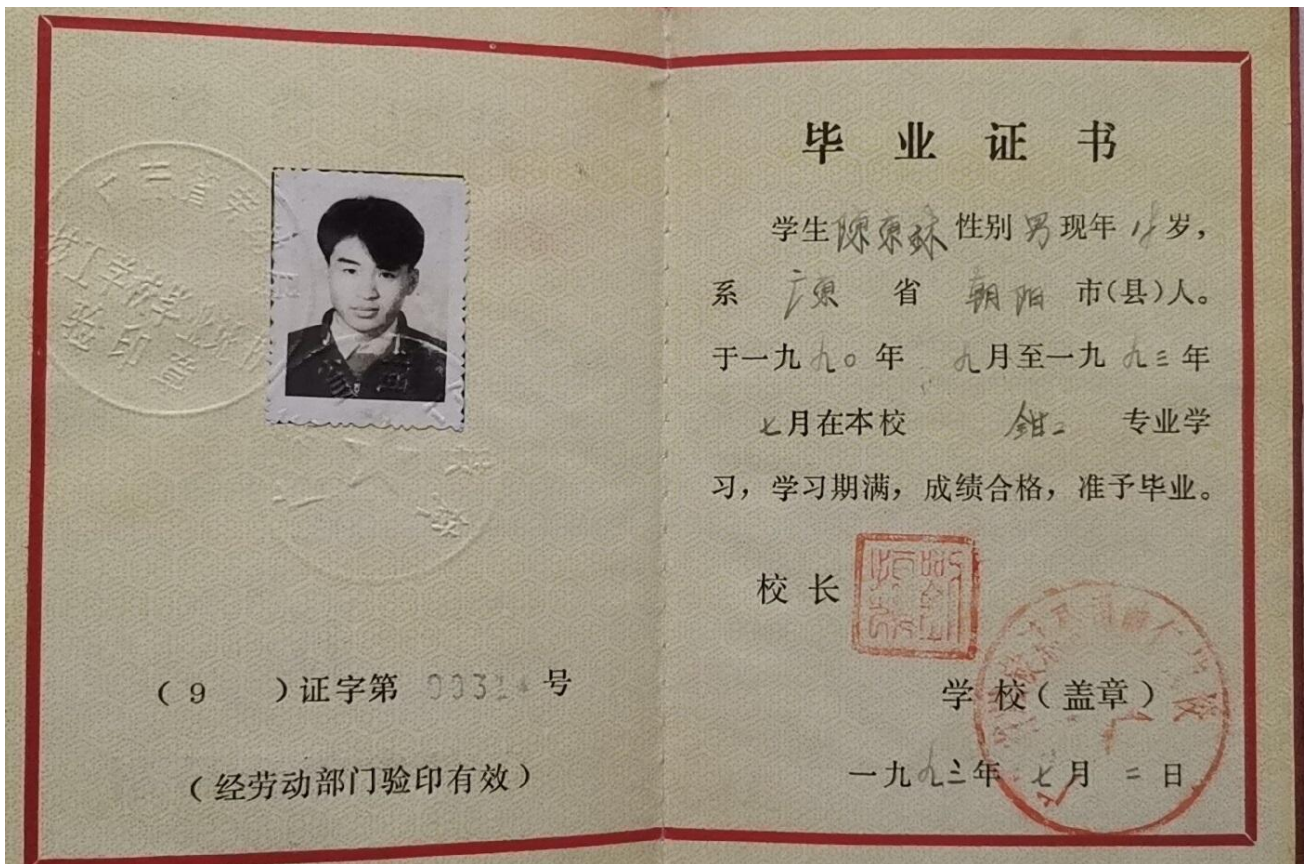 技工学校毕业证书
验印章
(9 )证字第 号
(经劳动部门验印有效)
毕业证书
学生陈东 性别男现年 岁,
系 广东 省 朝阳 市(县)人。
于一九九〇年 九月至一九九三年
七月在本校 钳工 专业学
习,学习期满,成绩合格,准予毕业。
校长
学校(盖章)
一九九三年 七月 二日